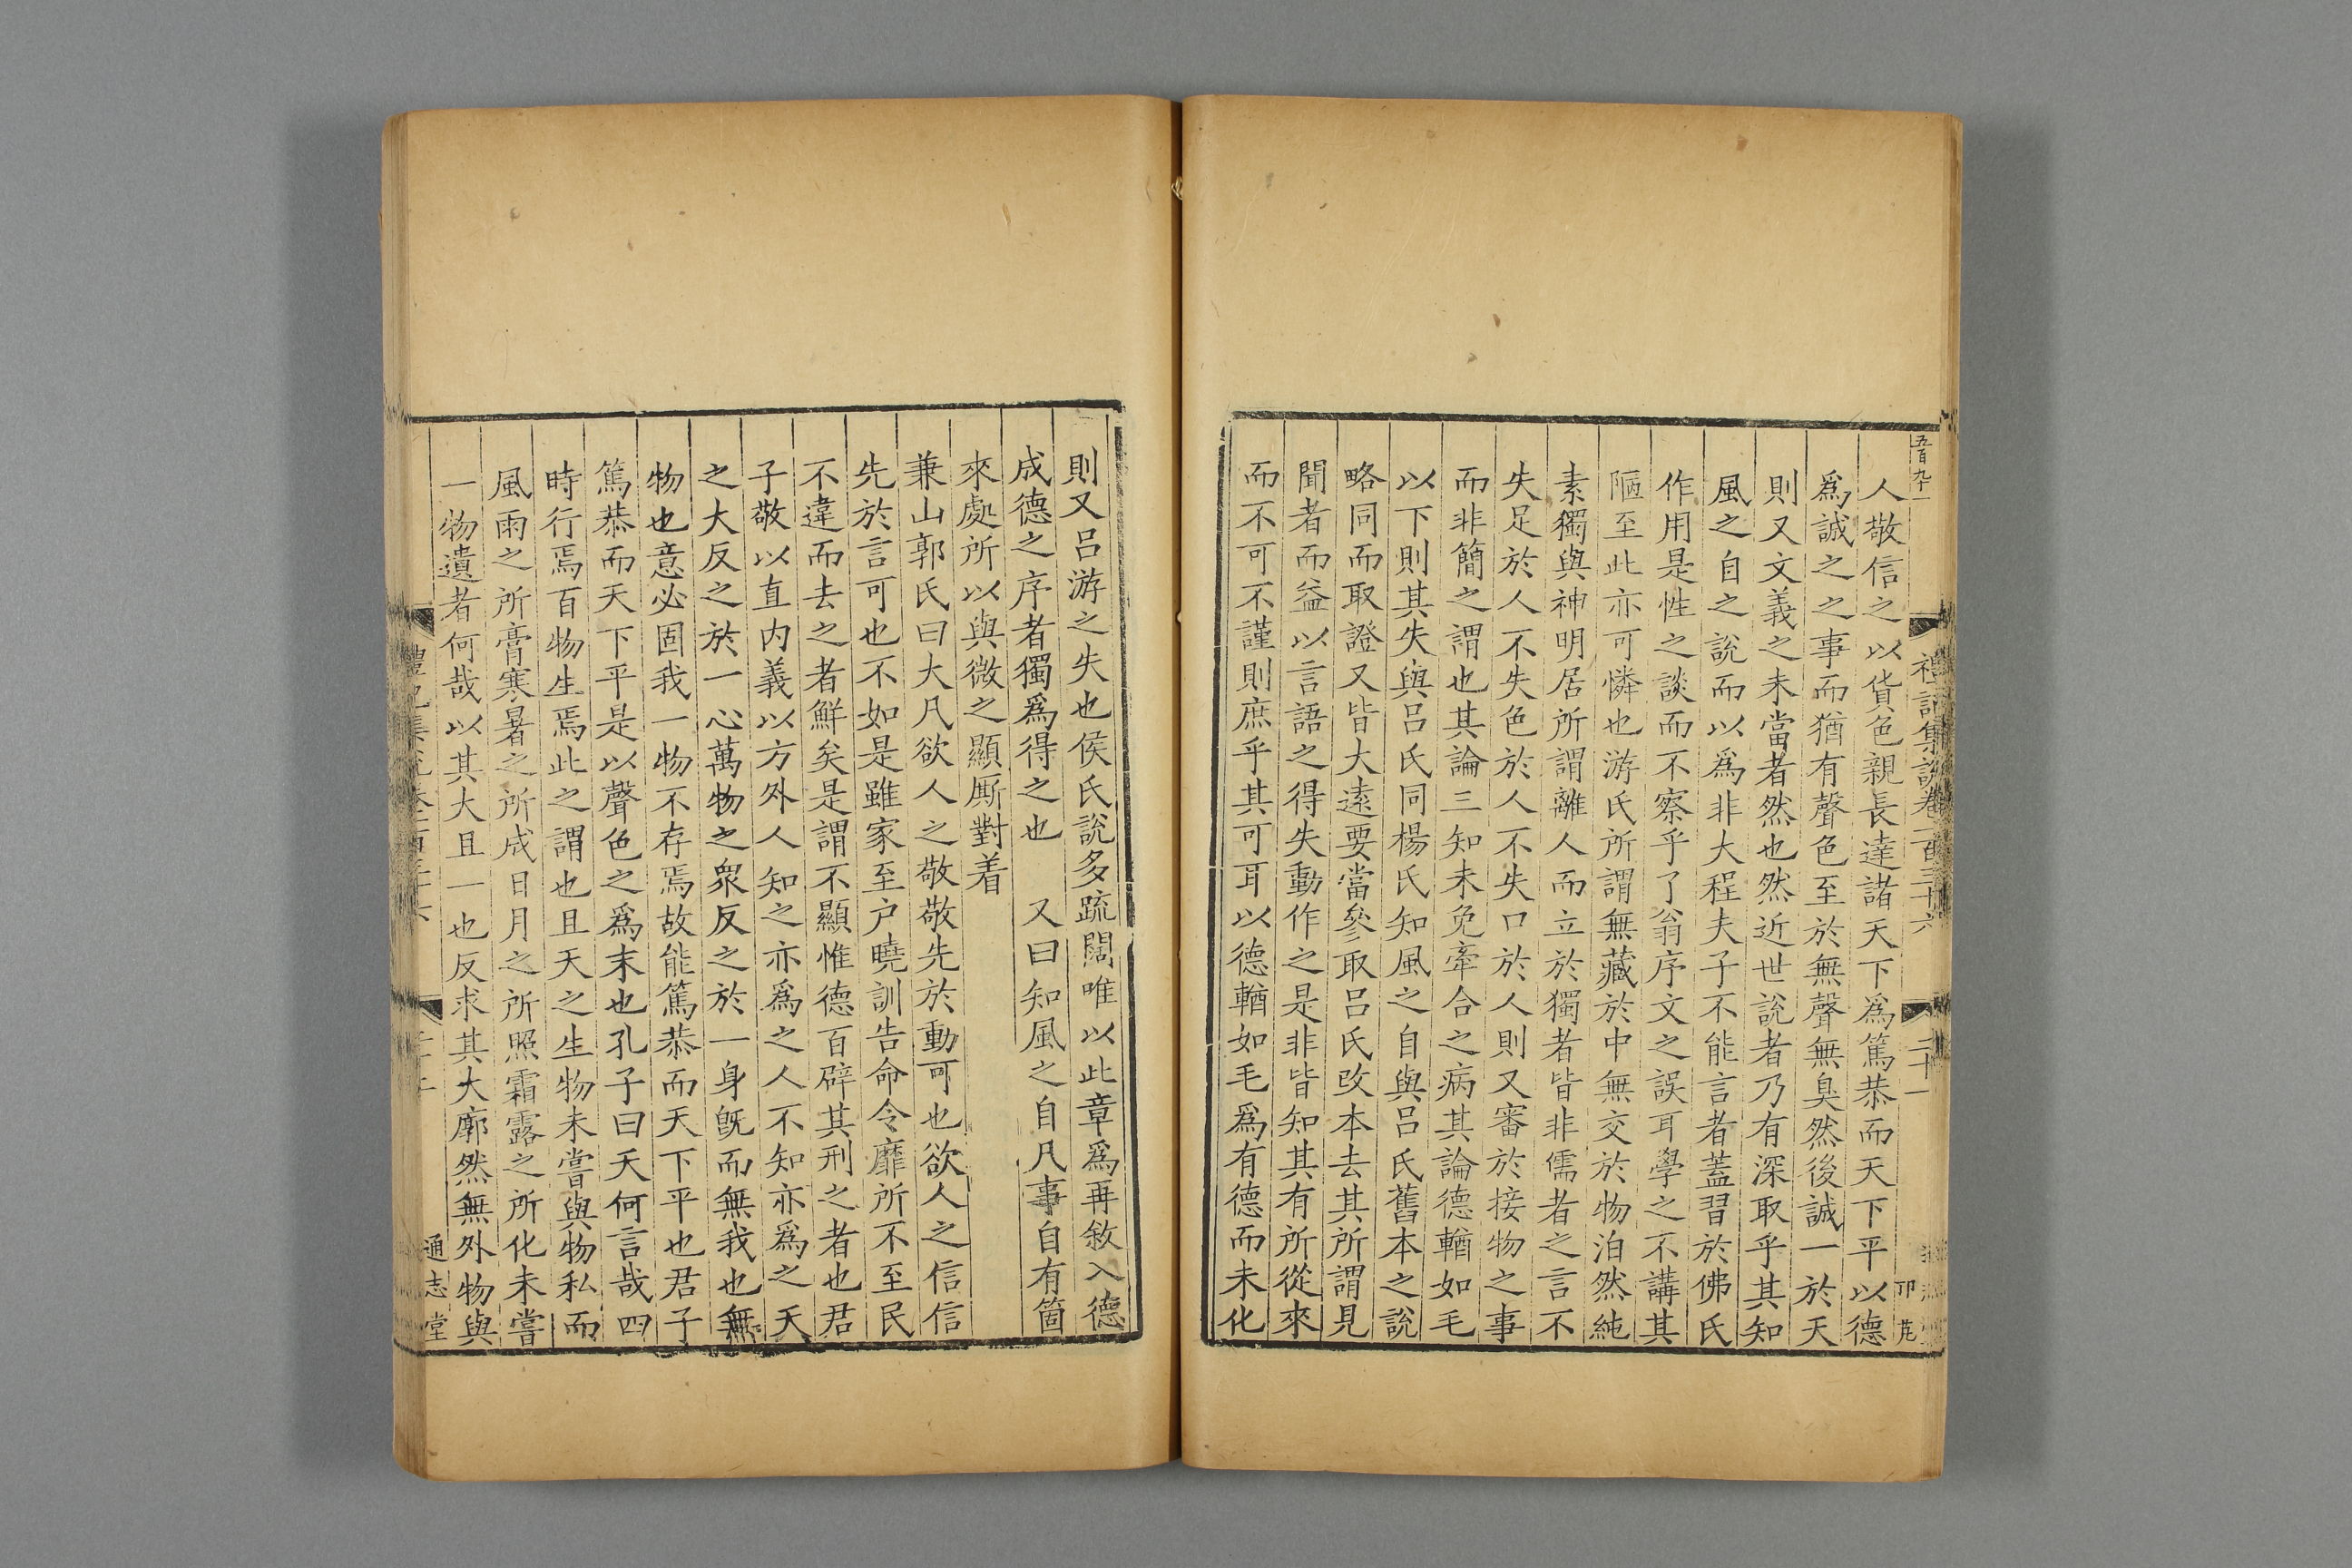 五百九十一
禮記集說卷一百三十六
二十一
卭芃
人敬信之以貨色親長達諸天下爲篤恭而天下平以德
爲誠之之事而猶有聲色至於無聲無臭然後誠一於天
則又文義之未當者然也然近世說者乃有深取乎其知
風之自之說而以爲非大程夫子不能言者蓋習於佛氏
作用是性之談而不察乎了翁序文之誤耳學之不講其
陋至此亦可憐也游氏所謂無藏於中無交於物泊然純
素獨與神明居所謂離人而立於獨者皆非儒者之言不
失足於人不失色於人不失口於人則又審於接物之事
而非簡之謂也其論三知未免牽合之病其論德輶如毛
以下則其失與呂氏同楊氏知風之自與呂氏舊本之說
略同而取證又皆大遠要當參取呂氏改本去其所謂見
聞者而益以言語之得失動作之是非皆知其有所從來
而不可不謹則庶乎其可耳以德輶如毛爲有德而未化
則又呂游之失也侯氏說多疏闊唯以此章爲再敘入德
成德之序者獨爲得之也　又曰知風之自凡事自有箇
來處所以與微之顯厮對着
兼山郭氏曰大凡欲人之敬敬先於動可也欲人之信信
先於言可也不如是雖家至户曉訓告命令靡所不至民
不違而去之者鮮矣是謂不顯惟德百辟其刑之者也君
子敬以直内義以方外人知之亦爲之人不知亦爲之天
之大反之於一心萬物之衆反之於一身旣而無我也無
物也意必固我一物不存焉故能篤恭而天下平也君子
篤恭而天下平是以聲色之爲末也孔子曰天何言哉四
時行焉百物生焉此之謂也且天之生物未嘗與物私而
風雨之所膏寒暑之所成日月之所照霜露之所化未嘗
一物遺者何哉以其大且一也反求其大廓然無外物與
通志堂